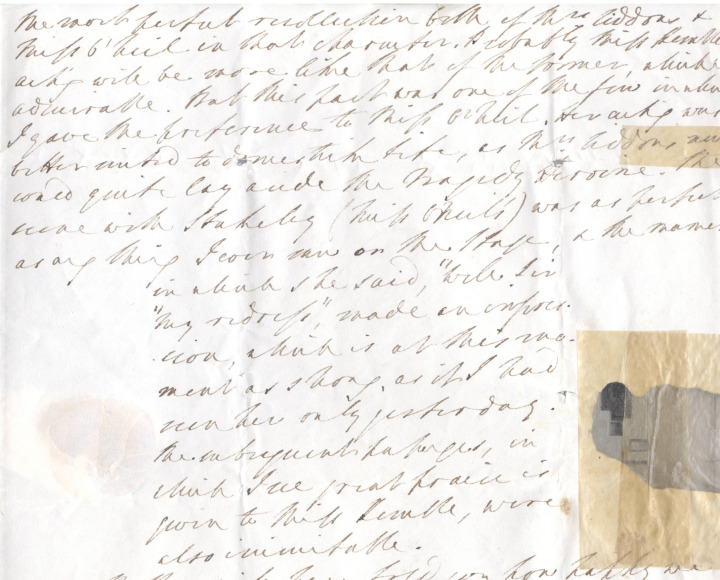 the most perfect recollection both of Mrs Siddons &
Miss O'Neil in that character. Probably Miss Kemble
acting will be more like that of the former, which
admirable. But this part was one of the few in which
I gave the preference to Miss O'Neil. Her acting was
better suited to domestick life, as Mrs Siddons
could quite lay aside the Tragedy Heroine. The
scene with Stukeley (Miss O'Neill's) was as perfect
as any thing I ever saw on the Stage, & the manner
in which she said, "Well Sir
"my redress", made an impres-
sion, which is at this mo-
ment as strong, as if I had
seen her only yesterday.
The subsequent passages, in
which I see great praise is
given to Miss Kemble, were
also inimitable.
told you how happy we